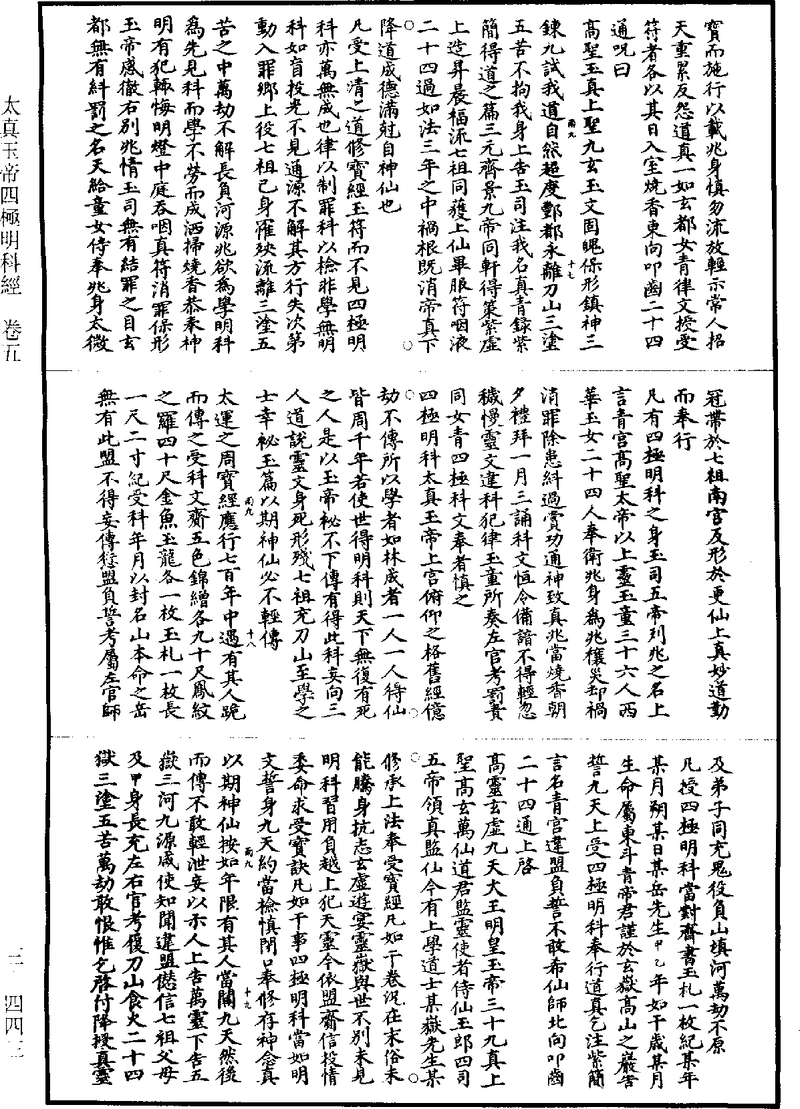 太真玉帝四極明科經　卷五
三　四四三
寶而施行以戴兆身慎勿流放輕示常人招
天重累反怨道真一如玄都女青律文授受
符者各以其日入室燒香東向叩齒二十四
通呪曰
高聖玉真上聖九玄玉文固魄保形鎮神三
鍊九試我道自然超度酆都永離刀山三塗
五苦不拘我身上告玉司注我名真青錄紫
簡得道之篇三元齊景九帝同軒得策紫虛
上造昇晨福流七祖同獲上仙畢服符咽液
二十四過如法三年之中禍根既消帝真下
降道成德滿尅自神仙也
凡受上清之道修寶經玉符而不見四極明
科亦萬無成也律以制罪科以檢非學無明
科如盲投光不見通源不解其方行失次第
動入罪鄉上役七祖己身罹殃流離三塗五
苦之中萬劫不解長負河源兆欲為學明科
為先見科而學不勞而成洒掃燒香恭奉神
明有犯輙悔明燈中庭吞咽真符消罪保形
玉帝感徹右別兆情玉司無有結罪之目玄
都無有糾罰之名天給童女侍奉兆身太微
冠帶於七祖南宮反形於更仙上真妙道勤
而奉行
凡有四極明科之身玉司五帝列兆之名上
言青宮高聖太帝以上靈玉童三十六人西
華玉女二十四人奉衛兆身為兆穰災却禍
消罪除患糾過賞功通神致真兆當燒香朝
夕禮拜一月三誦科文恒令備諳不得輕忽
穢慢靈文違科犯律玉童所奏左官考罰責
同女青四極科文奉者慎之
四極明科太真玉帝上宮俯仰之格舊經億
劫不傳所以學者如林成者一人一人得仙
皆周千年若使世得明科則天下無復有死
之人是以玉帝祕不下傳有得此科妄向三
人道說靈文身死形殘七祖充刀山至學之
士幸祕玉篇以期神仙必不輕傳
太運之周寶經應行七百年中遇有其人跪
而傳之受科文齋五色錦繒各九十尺鳳紋
之羅四十尺金魚玉龍各一枚玉札一枚長
一尺二寸紀受科年月以封名山本命之岳
無有此盟不得妄傳愆盟負誓考屬左官師
及弟子同充鬼役負山填河萬劫不原
凡授四極明科當對齋書玉札一枚紀某年
某月朔某日某岳先生甲乙年如干歲某月
生命屬東斗青帝君謹於玄嶽高山之巖告
誓九天上受四極明科奉行道真乞注紫簡
言名青宮違盟負誓不敢希仙師北向叩齒
二十四通上啓
高靈玄虛九天大王明皇玉帝三十九真上
聖高玄萬仙道君監靈使者侍仙玉郎四司
五帝領真監仙今有上學道士某嶽先生某
修承上法奉受寶經凡如干卷況在末俗未
能騰身抗志玄虛遊宴靈嶽與世不別未見
明科習用負越上犯天靈今依盟齋信投情
委命求受寶訣凡如干事四極明科當如明
文誓身九天約當檢慎閉口奉修存神念真
以期神仙按如年限有其人當關九天然後
而傳不敢輕泄妄以示人上告萬靈下告五
嶽三河九源咸使知聞違盟愆信七祖父母
及甲身長充左右官考復刀山食火二十四
獄三塗五苦萬劫敢恨惟乞啓付降授真靈